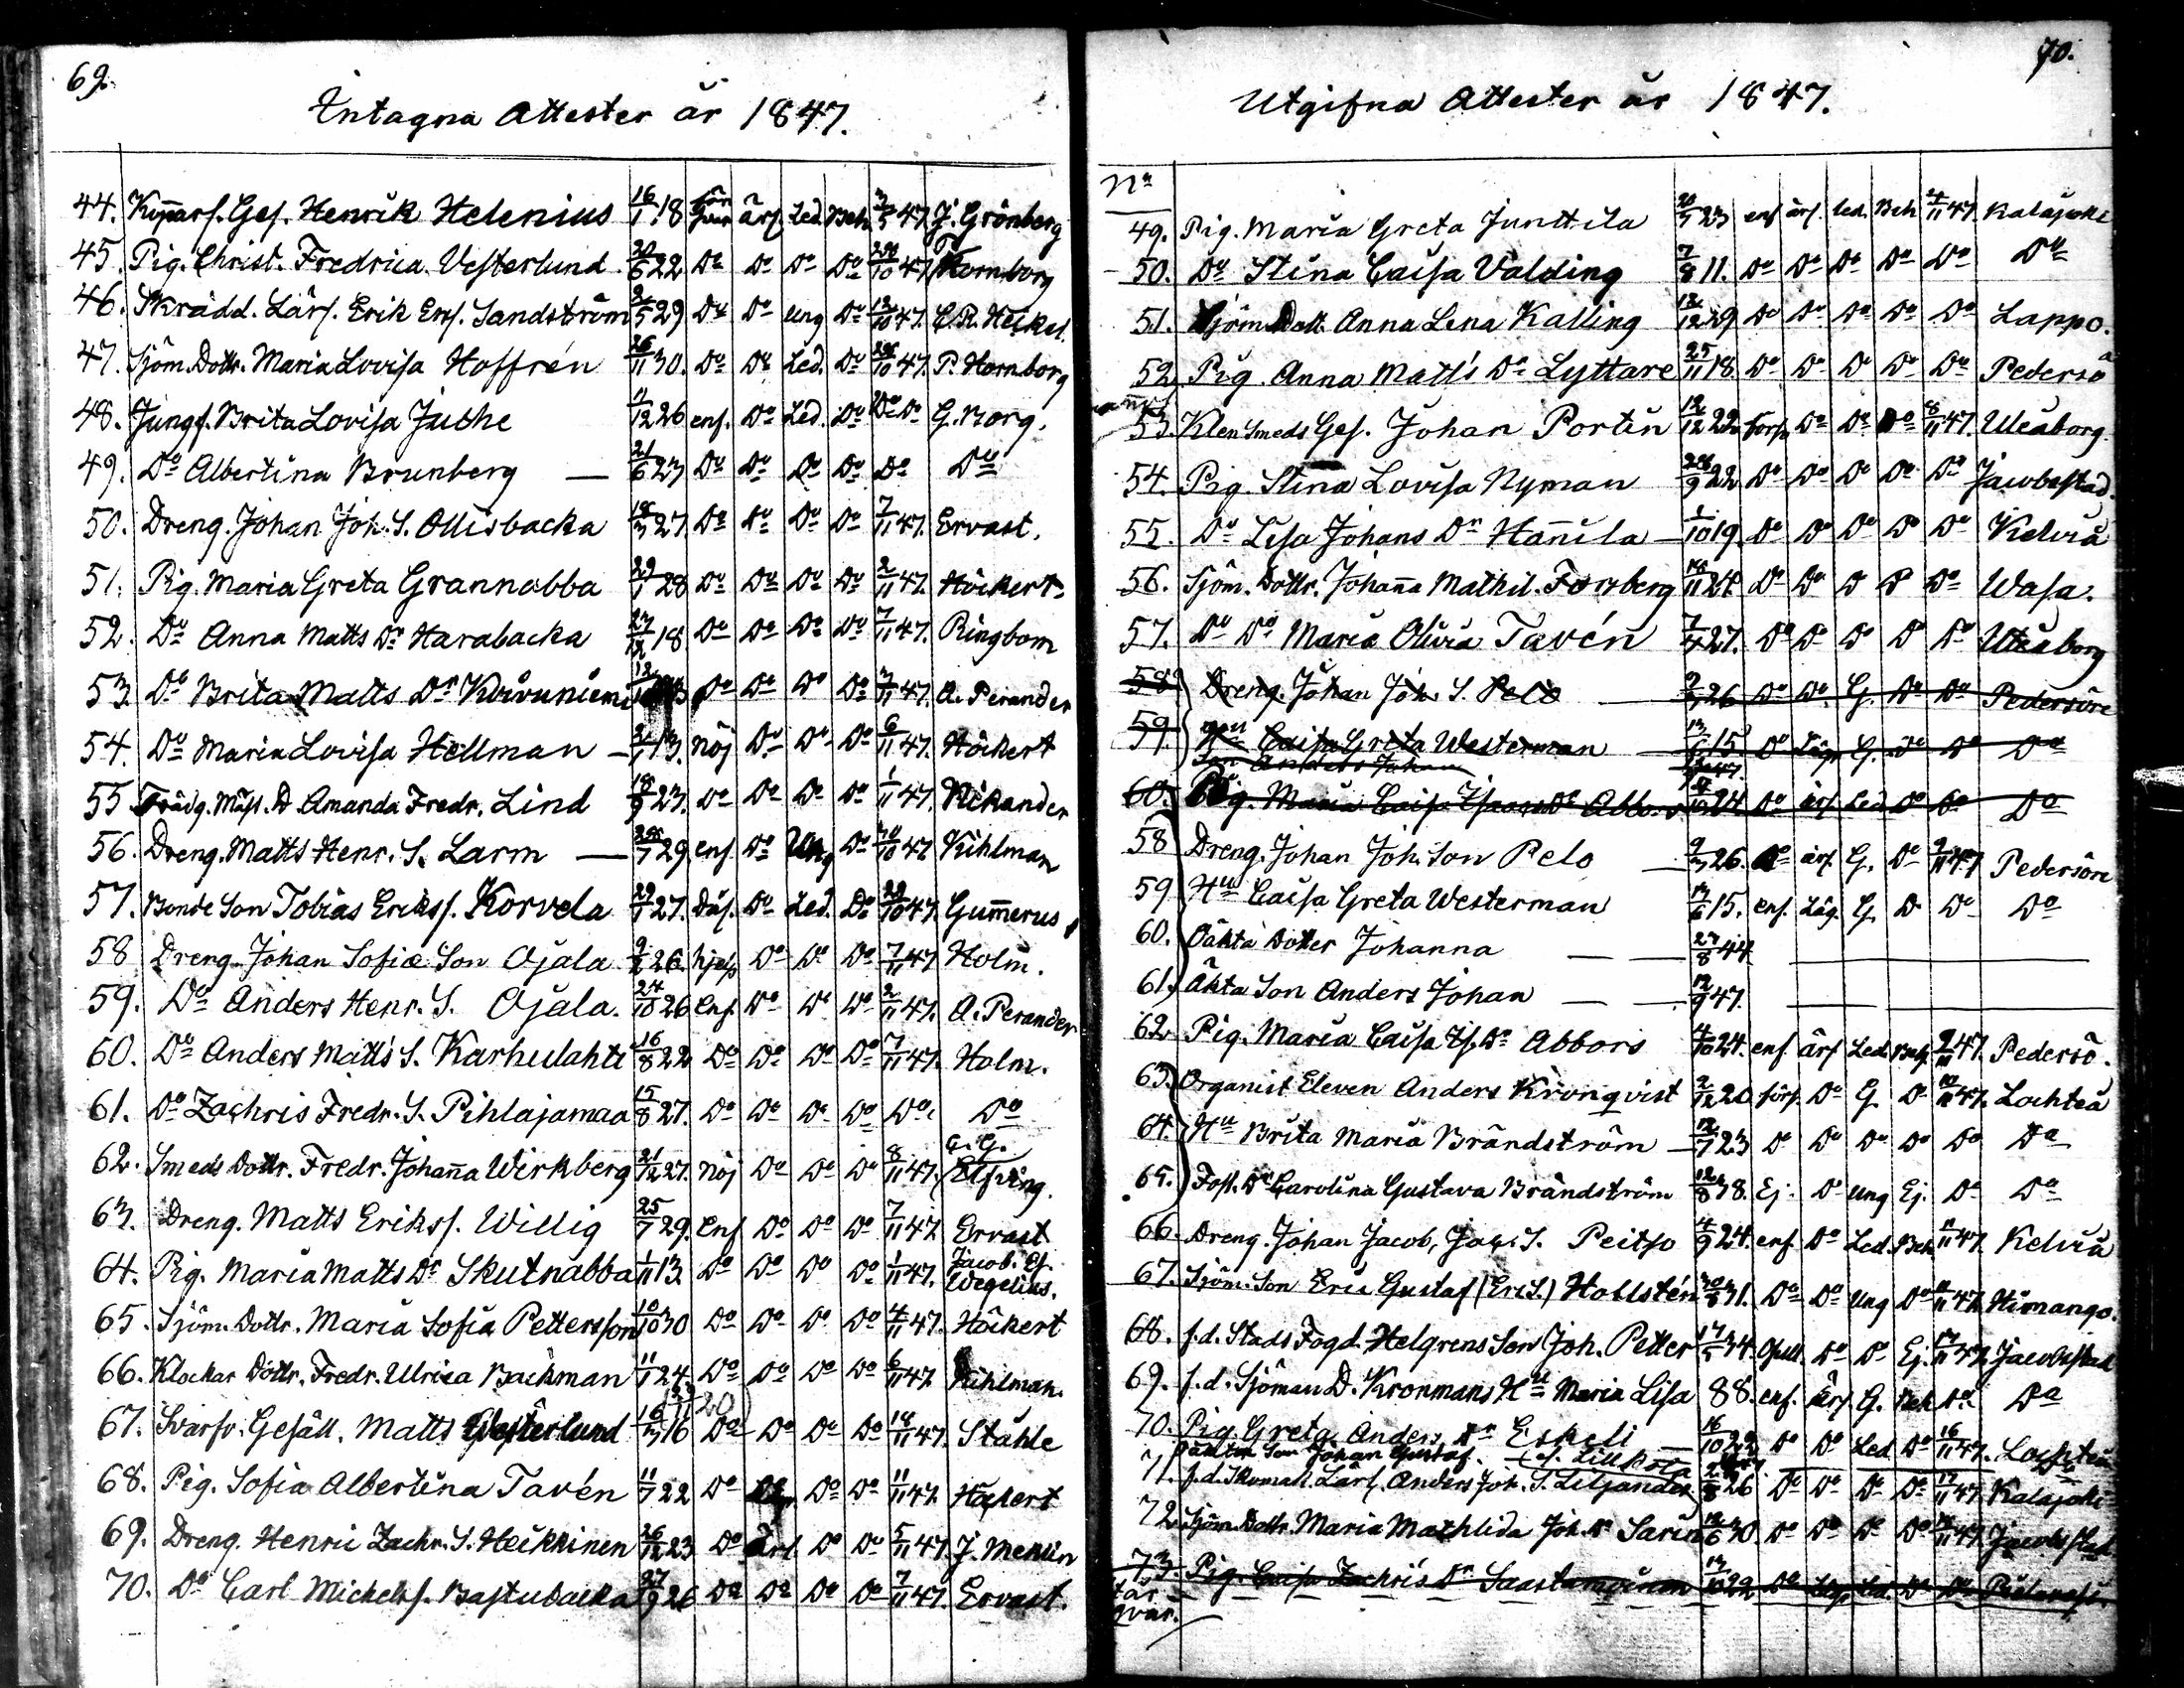 69.
Intagna Attester år 1847.
44. Koppars. Ges. Henrik Helenius 16/1 18 ärl Led. Beh 3/5 47 J. Grönberg
45. Pig. Christ. Fredrica Vesterlund 20/6 22 Do Do Do Do 29/10 47 Hornborg
46. Skrädd. Lärl. Erik Ers. Sandström 2/5 29 Do Do ung Do 12/10 47. C. R. Heikel
47. Sjöm. Dottr. Maria Lovisa Hoffrén 26/11 30. Do Do Led. Do 26/10 47. P. Hornborg
48. Jungf. Brita Lovisa Juthe 11/12 26 enf. Do Led. Do Do Do G. Borg.
49. Do Albertina Brunberg — 21/6 23 Do Do Do Do Do Do
50. Dreng. Johan Joh. S. Ollisbacka 18/3 27. Do Do Do Do 7/11 47. Ervast.
51. Pig. Maria Greta Grannabba 29/7 28 Do Do Do Do 2/11 47. Höckert
52. Do Anna Matts Dr Harabacka 27/12 18 Do Do Do Do 7/11 47. Ringbom
53. Do Brita Matts Dr Koivuniemi Do Do Do Do 3/11 47. A. Perander
54. Do Maria Lovisa Hellman — 13. nöj Do Do Do 6/11 47. Höckert
55 Trädg. Mäst. D Amanda Fredr. Lind 18/9 23. Do Do Do Do 1/11 47. Nikander
56. Dreng. Matts Henr. S. Larm — 28/7 29 enf Do Ung Do 30/10 47 Kihlman
57. Bonde Son Tobias Erikss. Korvela 29/7 27. Do Led. Do 29/10 47 Gummerus
58 Dreng Johan Sofiæ Son Ojala 9/2 26. hjelp Do Do Do 7/11 47 Holm.
59. Do Anders Henr. S. Ojala. 24/10 26 enf. Do Do Do 2/11 47. A. Perander
60. Do Anders Matts S. Karhulahti 16/8 22 Do Do Do Do 7/11 47. Holm.
61. Do Zachris Fredr. S. Pihlajamaa 15/8 27. Do Do Do Do Do Do
62. Smeds Dottr. Fredr. Johanna Wirkberg 21/12 27. nöj Do Do Do 8/11 47. C. G. Elfving.
63. Dreng. Matts Erikss. Willig 25/7 29. Enf Do Do Do 7/11 47 Ervast
64. Pig. Maria Matts Dr Skutnabba 1/11 13. Do Do Do Do 1/11 47. Jacob. Ef. Wegelius.
65. Sjöm. Dottr. Maria Sofia Pettersson 10/10 30 Do Do Do Do 4/11 47. Höckert
66. Klockar Dottr. Fredr. Ulrica Backman 11/1 24. Do Do Do Do 6/11 47. Kihlman.
67. Svarfv. Gesäll. Matts Westerlund 16/3 16 Do Do Do Do 18/11 47. Ståhle
68. Pig. Sofia Albertina Tavén 11/7 22 Do Do Do 11/11 47. Höckert
69. Dreng. Henric Zachr. S. Heikkinen 26/12 23 Do Ärl Do Do 5/11 47. J. Menlin
70. Do Carl Michelss. Bastubacka 27/9 26 Do Do Do Do 7/11 47. Ervast.
70.
Utgifna Attester år 1847.
No
49. Pig. Maria Greta Junttila 20/7 23 enf ärl. led. Beh 4/11 47. Kalajoki
50. Do Stina Caisa Valding 7/8 11. Do Do Do Do Do Do
51. Sjöm. Dott. Anna Lena Kalling 12/12 29 Do Do Do Do Do Lappo.
52 Pig. Anna Matts Dr Lyttare 25/11 18. Do Do Do Do Do Pedersö
53. Klen Smeds Ges. Johan Portin 12/12 22 förs. Do Do Do 8/11 47. Uleåborg
54. Pig. Stina Lovisa Nyman 28/9 22 Do Do Do Do Do Jacobstad.
55. Do Lisa Johans Dr Hannila — 1/10 19. Do Do Do Do Do Kelviå
56. Sjöm. Dottr. Johanna Mathil. Forsberg 14/11 24. Do Do D Do Do Wasa.
57. Do Do Maria Olivia Tavén 7/4 27. Do Do Do Do Do Uleåborg
58 Dreng. Johan Joh. S. Pelo 9/3 26 Do Do. G. Do Do Pedersöre
59. Hu Caisa Greta Westerman 13/6 15 Do Läg. G. Do Do Do
Son Anders Johan
60. Pig. Maria Caisa Isaacs Dr Abbors 4/10 24 Do ärl Led Do Do Do
58 Dreng. Johan Joh. Son Pelo 9/3 26. Do ärl G. Do 9/11 47 Pedersöre
59 Hu Caisa Greta Westerman 13/6 15. enf. Läg. G. D Do Do
60. Oäkta Dotter Johanna — 27/8 44
61. Äkta Son Anders Johan — — 12/9 47.
62 Pig. Maria Caisa Is. Dr Abbors 4/10 24. enf. ärl Led. Beh. 9/11 47. Pedersö.
63. Organist Eleven Anders Kronqvist 2/12 20 förs. Do G. D 10/11 47. Lochteå
64. Hu Brita Maria Brandström — 12/7 23 D Do Do Do Do Do
65. Fost. Dr Carolina Gustava Brandström 12/8 38. Ej. D ung Ej. Do Do
66. Dreng. Johan Jacob, Jac. S. Peitso 4/9 24. enf. Do Led. Beh. 11/11 47. Kelviå
67. Sjöm. Son Eric Gustaf (Er. S.) Hollstén 30/8 31. Do Do Ung Do 11/11 47. Himango.
68. f.d. Stads Fogd. Helgrens Son Joh. Petter 17/5 34. Do Do Ej. 17/11 47. Jacobstad
69. f.d. Sjöman D. Kronmans Hu Maria Lisa 88. enf. Ärl G. Beh Do Do
70. Pig. Greta Anders Dr Eskeli — 16/10 22 Do Do Led Do 16/11 47. Lochteå
Oäkta Son Johan Gustaf.
71. f.d. Skomak. Lärl. Anders Joh. S. Liljander 26 Do Do Do Do 17/11 47. Kalajoki
72. Sjöm. Dottr. Maria Mathlida Joh. Dr Sarin 30. Do Do Do Do 47. Jacobstad
73. Pig. Caisa Zachris Dr Saastamoinen 13/10 22 Do Led. Do Do
är qvar.